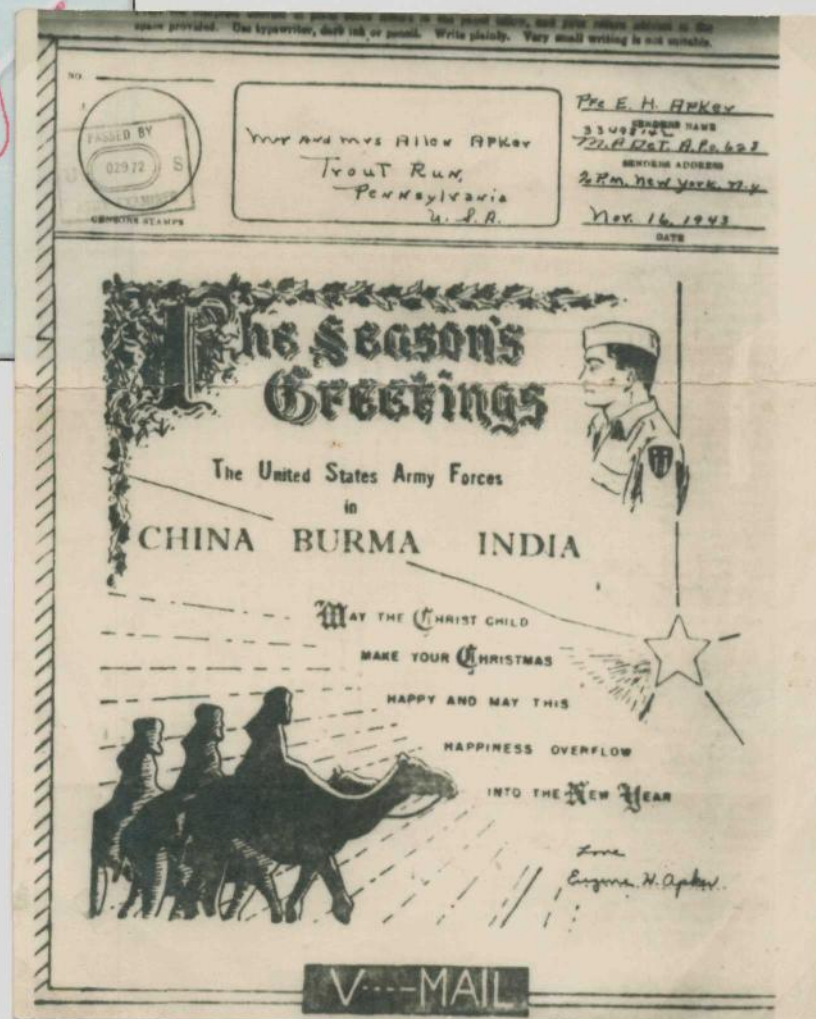 space provided. Use typewriter, dark ink or pencil. Write plainly. Very small writing is not suitable.
NO.
PASSED BY
U 02972 S
CENSOR'S STAMPS
Mr and Mrs Allen Apker
Trout Run,
Pennsylvania
U.S.A.
Pfc E. H. Apker
SENDERS NAME
M.P. Det. A.P.O. 628
SENDERS ADDRESS
% P.M. New York. N.Y
Nov. 16, 1943
DATE
The Season's
Greetings
The United States Army Forces
in
CHINA BURMA INDIA
MAY THE CHRIST CHILD
MAKE YOUR CHRISTMAS
HAPPY AND MAY THIS
HAPPINESS OVERFLOW
INTO THE NEW YEAR
Love
Eugene H. Apker.
V----MAIL